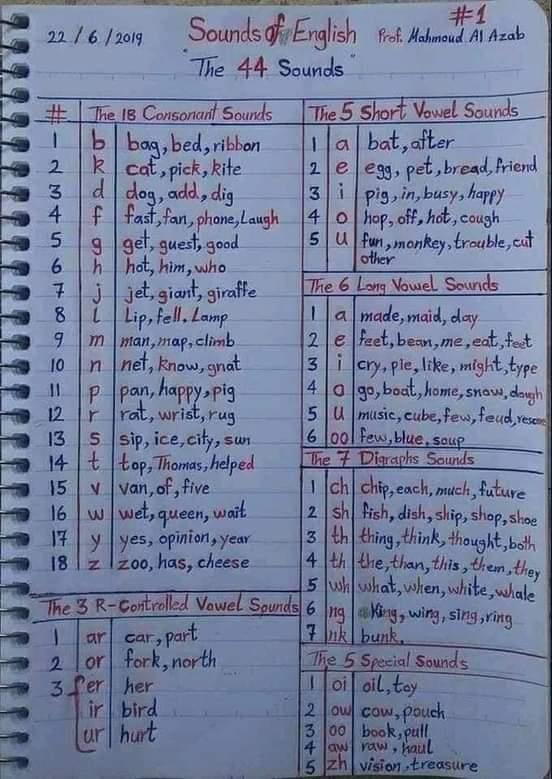 #1
22/6/2019 Sounds of English Prof. Mahmoud Al Azab
"The 44 Sounds"
# The 18 Consonant Sounds
1 b bag, bed, ribbon
2 k cat, pick, kite
3 d dog, add, dig
4 f fast, fan, phone, Laugh
5 g get, guest, good
6 h hot, him, who
7 j jet, giant, giraffe
8 l Lip, fell. Lamp
9 m man, map, climb
10 n net, know, gnat
11 p pan, happy, pig
12 r rat, wrist, rug
13 s sip, ice, city, sun
14 t top, Thomas, helped
15 v van, of, five
16 w wet, queen, wait
17 y yes, opinion, year
18 z zoo, has, cheese
The 3 R-Controlled Vowel Sounds
1 ar car, part
2 or fork, north
3 er her
ir bird
ur hurt
The 5 Short Vowel Sounds
1 a bat, after
2 e egg, pet, bread, friend
3 i pig, in, busy, happy
4 o hop, off, hot, cough
5 u fun, monkey, trouble, cut
other
The 6 Long Vowel Sounds
1 a made, maid, day
2 e feet, bean, me, eat, feet
3 i cry, pie, like, might, type
4 o go, boat, home, snow, dough
5 u music, cube, few, feud, rescue
6 oo few, blue, soup
The 7 Digraphs Sounds
1 ch chip, each, much, future
2 sh fish, dish, ship, shop, shoe
3 th thing, think, thought, both
4 th the, than, this, them, they
5 wh what, when, white, whale
6 ng King, wing, sing, ring
7 nk bunk,
The 5 Special Sounds
1 oi oil, toy
2 ow cow, pouch
3 oo book, pull
4 aw raw, haul
5 zh vision, treasure